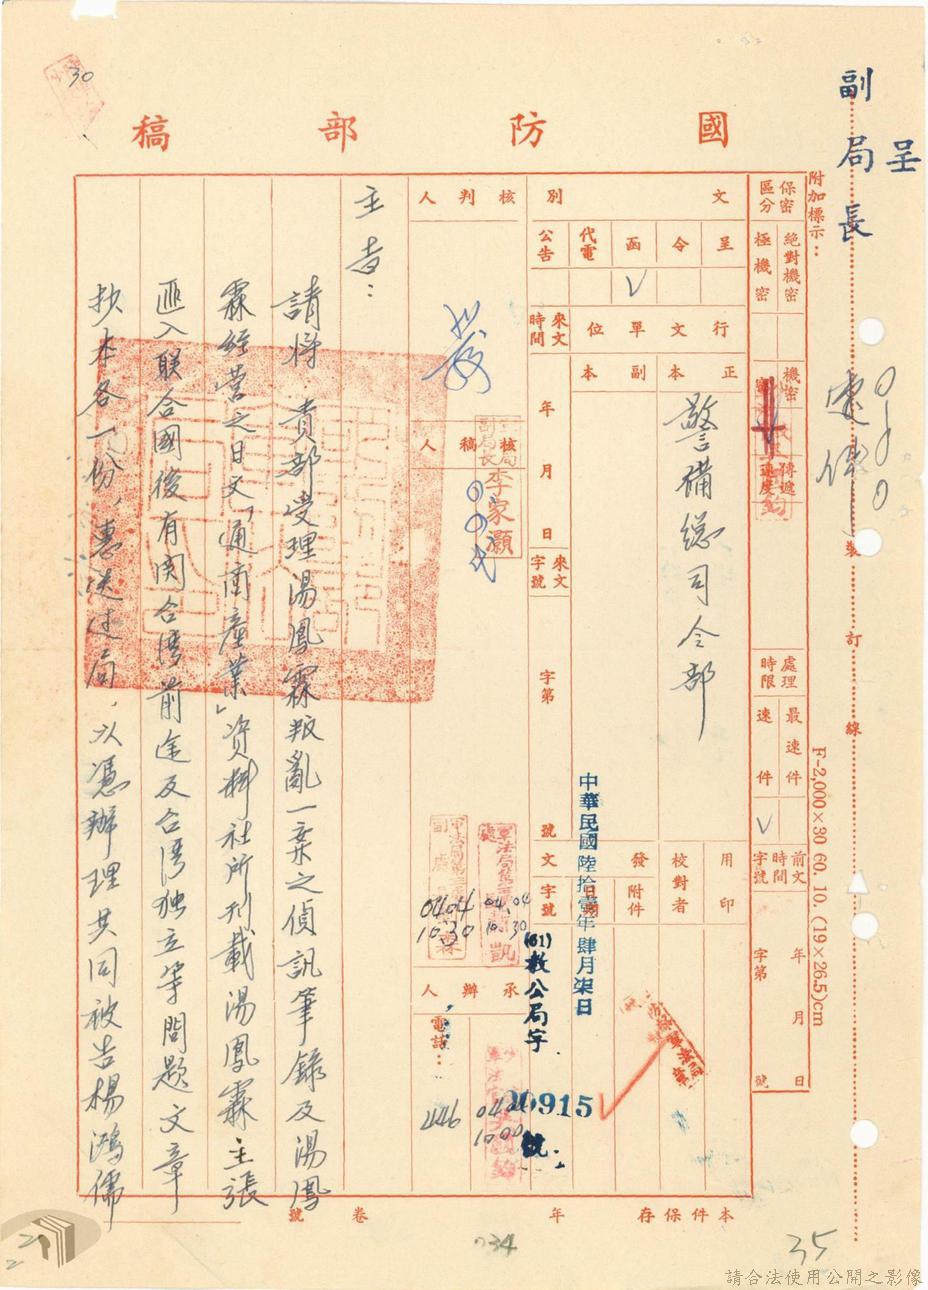 30
國防部稿
呈
副局長
附加標示：
保密區分
絕對機密
極機密
機密
密
傳遞速度
處理時限
最速件
速件
V
前文時間字號
年月日
字第號
裝訂線
F-2,000×30 60. 10. (19×26.5)cm
文別
呈
令
函
V
代電
公告
行文單位
正本
副本
警備總司令部
來文時間
年月日
來文字號
字第號
用印
校對者
發文
附件
日期
字號
中華民國陸拾壹年肆月柒日
(61)
公局字
20915
號
核判人
核稿人
軍法局副局長
李家灝
0404
1030
04.04
10.30
承辦人
電話：
446
0404
1000
主旨：
請將 貴部受理湯鳳霖叛亂一案之偵訊筆錄及湯鳳
霖經營之日文「通商產業」資料社所刊載湯鳳霖主張
匪入联合國後有関台湾前途及台湾独立等問题文章
抄本各一份，惠送过局，以憑辦理共同被告楊鴻儒
本件保存年
卷號
034
35
請合法使用公開之影像